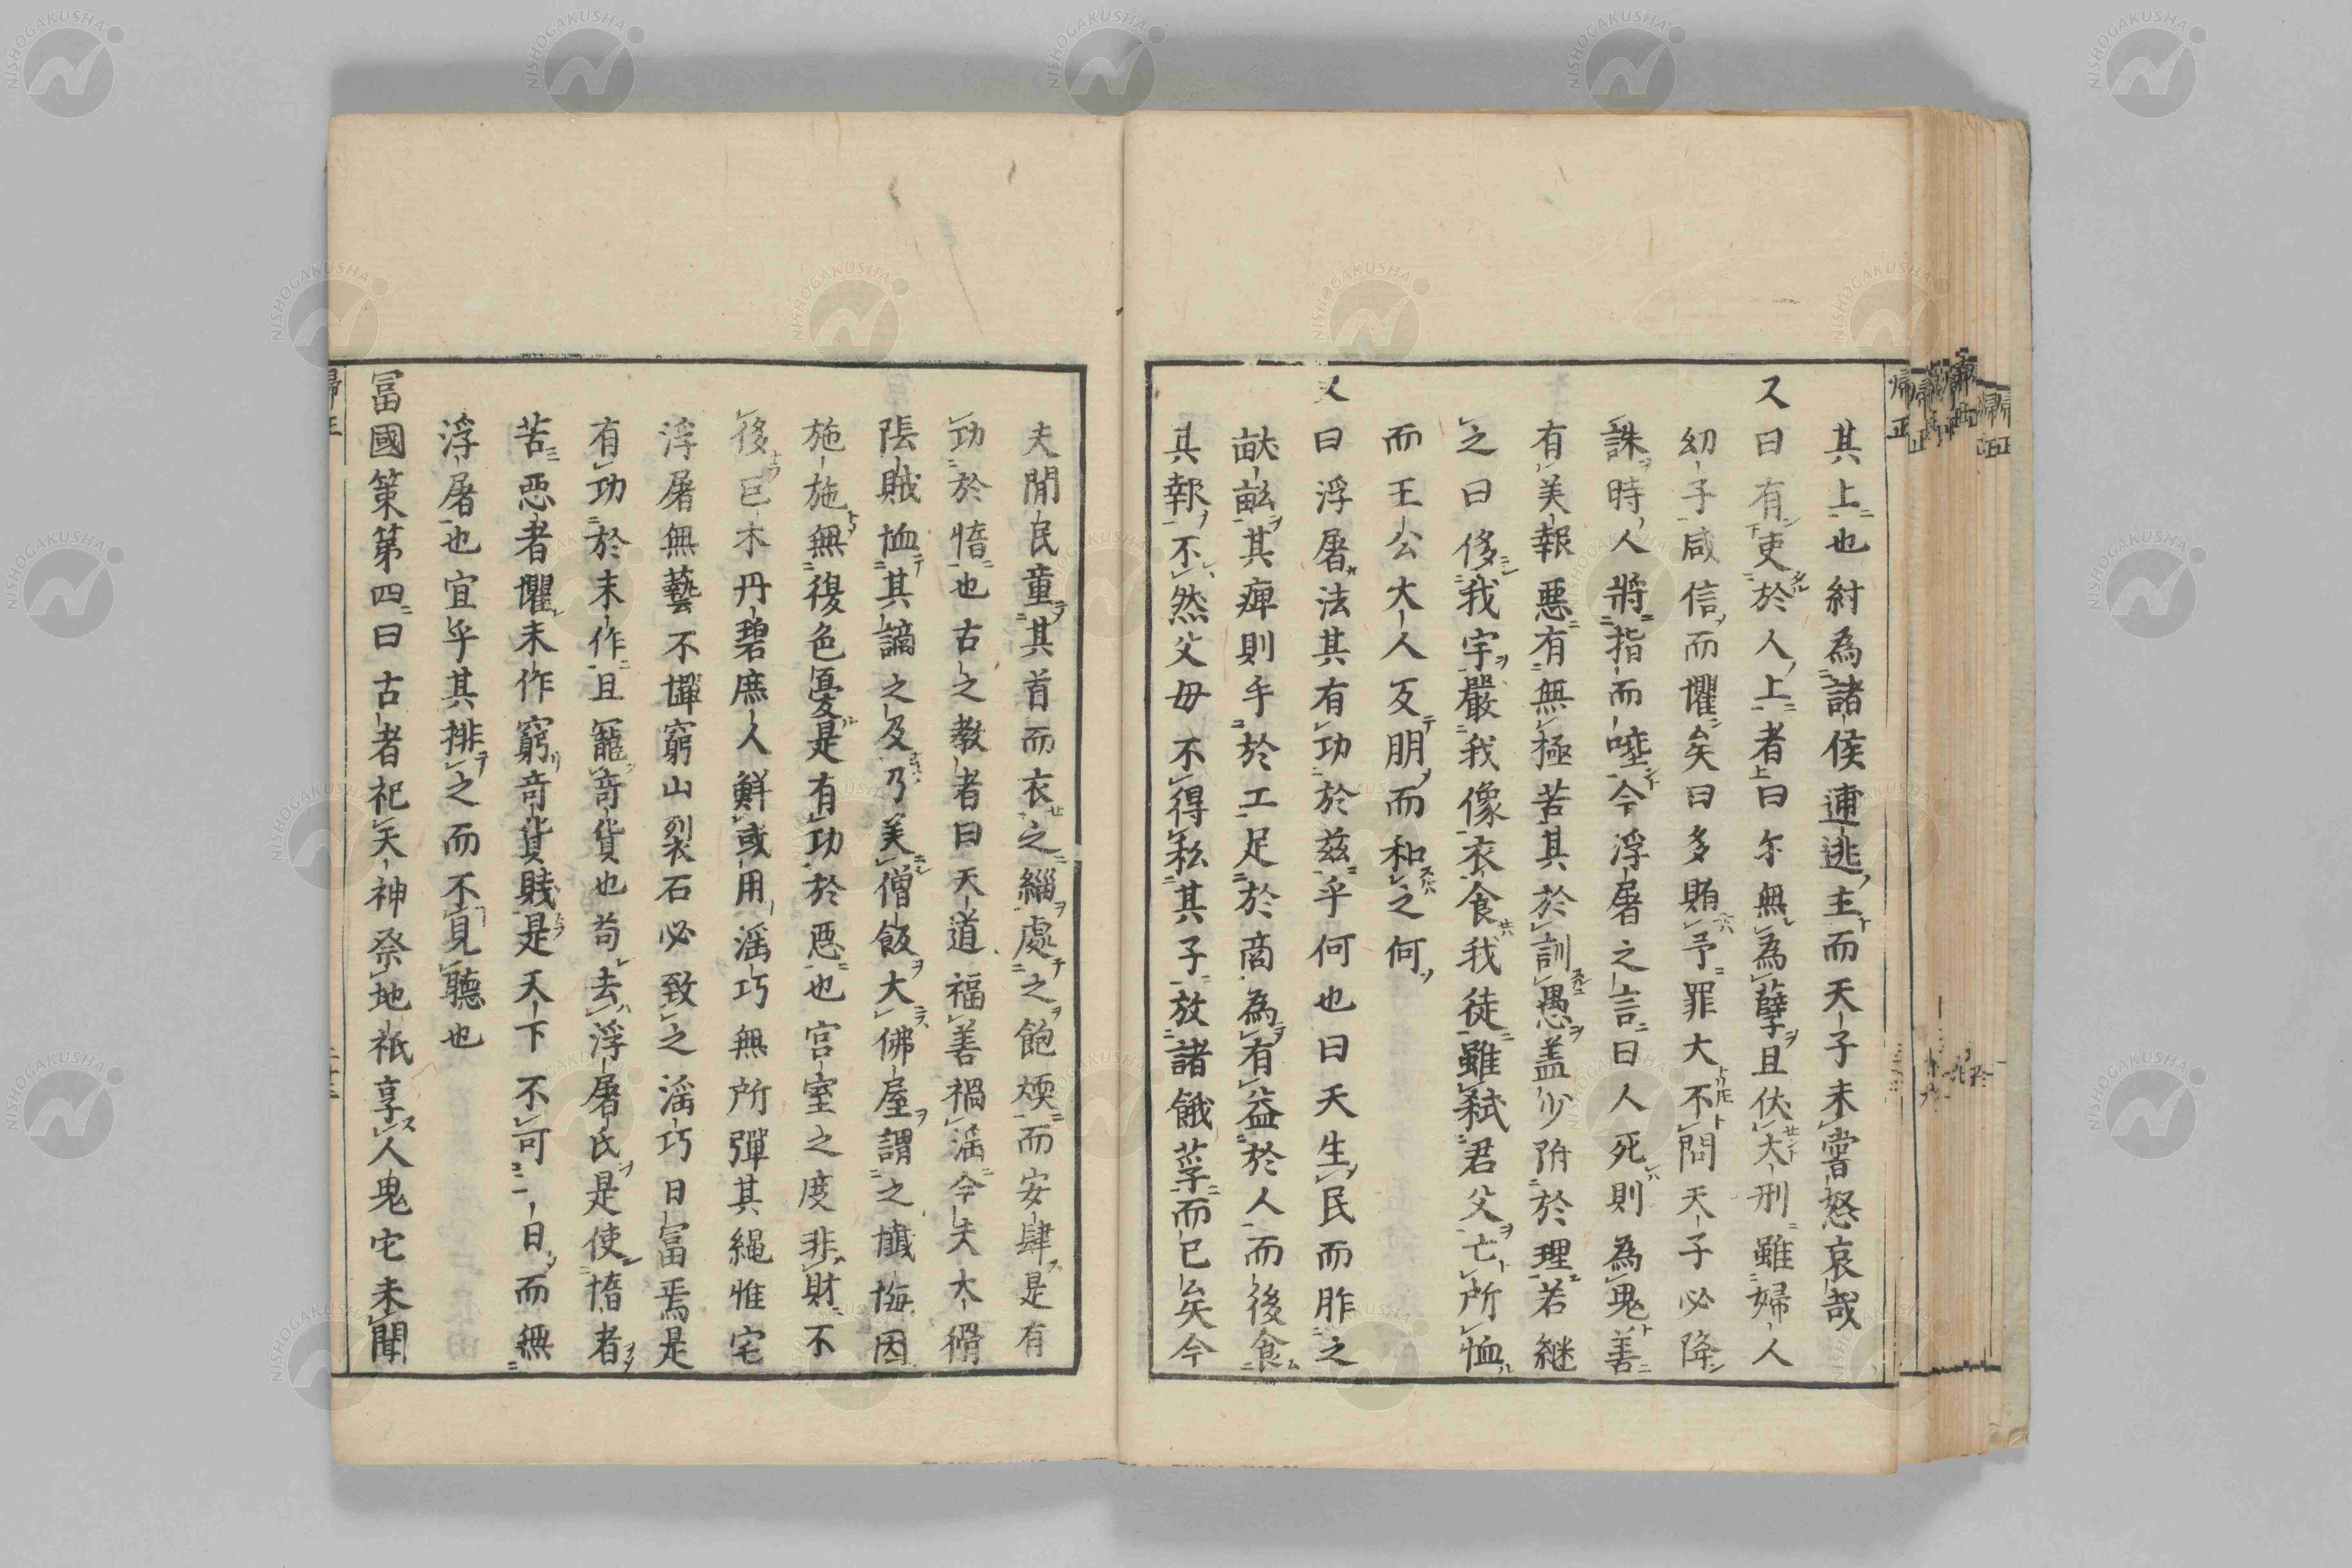 其上也紂為諸侯逋逃主而天子未嘗怒哀哉
又曰有吏於人上者曰尓無為孽且伏大刑雖婦人
幼子咸信而懼矣曰多賄予罪大不問天子必降
誅時人將指而唑今浮屠之言曰人死則為鬼善
有美報惡有無極苦其於訓愚盖少附於理若継
之曰侈我宇嚴我像衣食我徒雖弑君父亡所恤
而王公大人反朋而和之何
又曰浮屠法其有功於兹乎何也曰天生民而胙之
畎畝其痺則手於工足於商為有益於人而後食
其報不然父毋不得私其子放諸餓莩而已矣今
夫閒民童其首而衣之緇處之飽煗而安肆是有
功於惰也古之教者曰天道福善禍滛今夫大猾
陰賊恤其謫之及乃美僧飯大佛屋謂之懴悔因
施施無復色憂是有功於惡也宮室之度非財不
侈巨木丹碧庶人鮮或用滛巧無所彈其繩惟宅
浮屠無藝不憚窮山裂石必致之滛巧日富焉是
有功於末作且寵竒貨也苟去浮屠氏是使惰者
苦惡者懼末作窮竒貨賤是天下不可一日而無
浮屠也宜乎其排之而不見聽也
冨國策第四曰古者祀天神祭地祇享人鬼它未聞
帰正
NISHOGAKUSHA